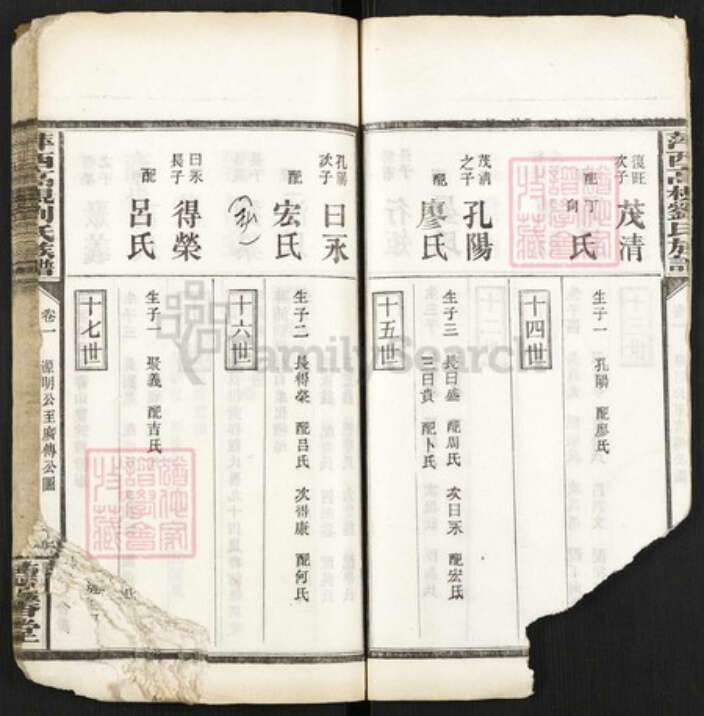 萍西高梘劉氏族譜
復旺次子 茂清
配丁向氏
生子一 孔陽 配廖氏
十四世
茂清之子 孔陽
配 廖氏
生子三 長日盛 配周氏 次日永 配宏氏
三曰貴 配卜氏
十五世
孔陽次子 曰永
配 宏氏
生子二 長得榮 配呂氏 次得康 配何氏
十六世
曰永長子 得榮
配 呂氏
生子一 聚義 配吉氏
十七世
萍西高梘劉氏族譜
卷一 源明公至廣傳公圖
FamilySearch